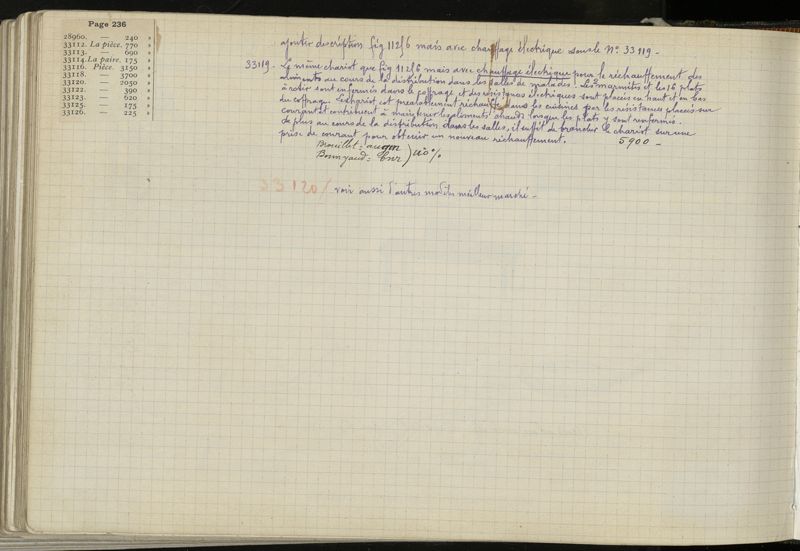 Page 236
28960. — 240 »
33112. La pièce. 770 »
33113. — 690 »
33114. La paire. 175 »
33116. Pièce. 3150 »
33118. — 3700 »
33120. — 2050 »
33122. — 390 »
33123. — 620 »
33125. — 175 »
33126. — 225 »
ajouter description fig 11256 mais avec chauffage électrique sous le N° 33119 –
33119. Le même chariot que fig 11256 mais avec chauffage électrique pour le réchauffement des
aliments au cours de la distribution dans les salles de malades. Les marmites et les 16 plats
à rôtir sont enfermés dans le coffrage et des résistances électriques sont placées en haut et en bas
du coffrage. Le chariot est préalablement réchauffé dans les cuisines par les résistances placées sur
courant et contribuent à maintenir les aliments chauds lorsque les plats y sont renfermés.
de plus au cours de la distribution dans les salles, il suffit de brancher le chariot sur une
prise de courant pour obtenir un nouveau réchauffement. 5900 –
33120 / voir aussi d'autres modèles meilleur marché –